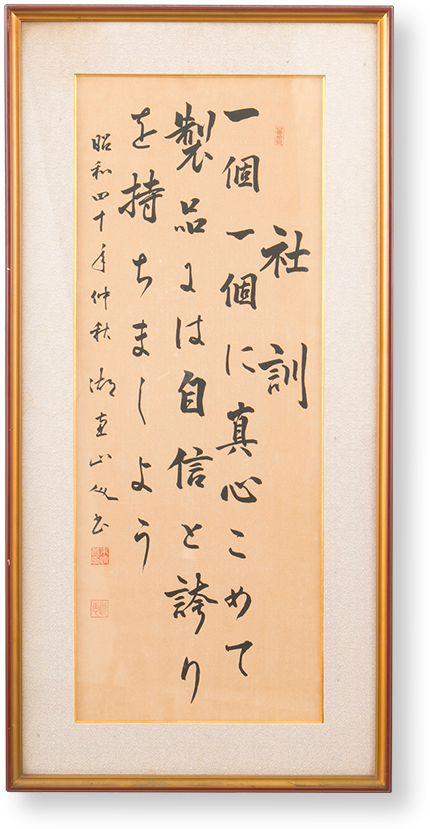 社訓
一個一個に真心こめて
製品には自信と誇り
を持ちましよう
昭和四十年仲秋 湖東山人書